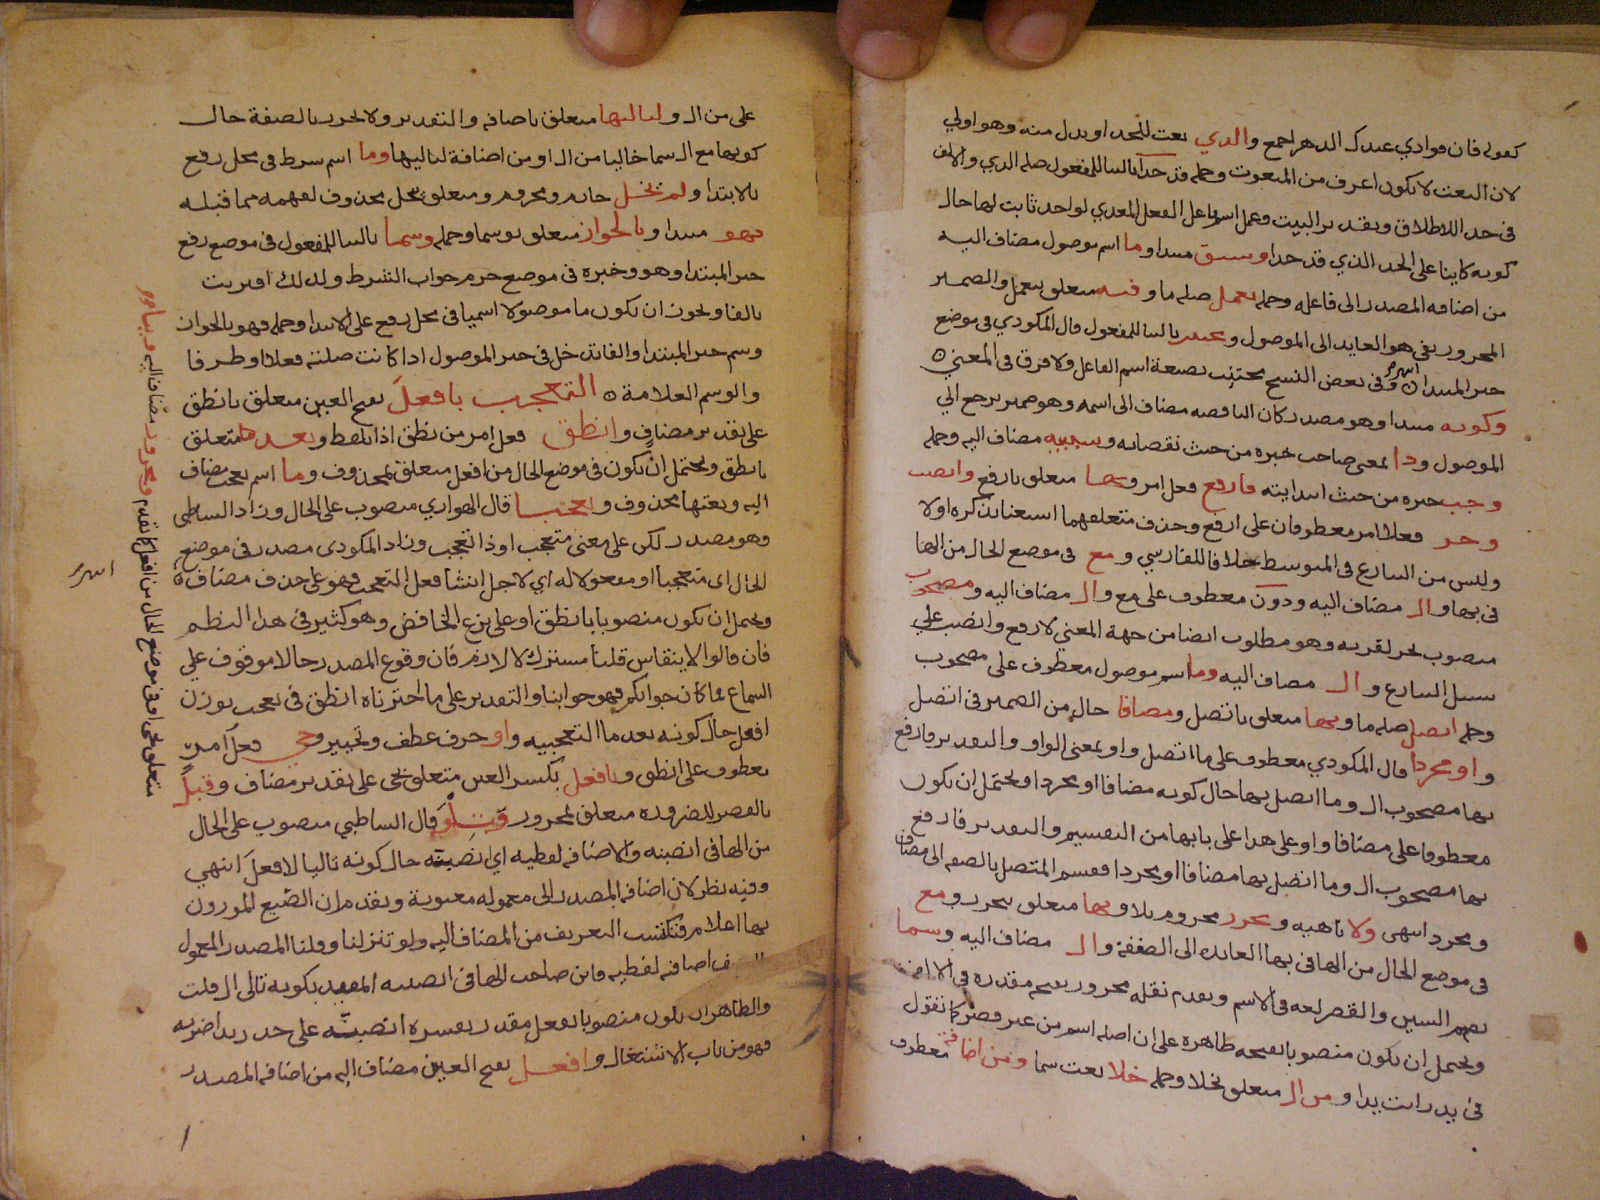 كقوله فان فوادي عندك الدهر اجمع والذي نعت للحد او بدل منه وهو اولي
لان النعت لا يكون اعرف من المنعوت وجمله قد حدا بالبنا للمفعول صله الذي والالف
في حد اللاطلاق وتقدير البيت وعمل اسم فاعل الفعل المعدي لواحد ثابت لها حال
كونه كاينا على الحد الذي قد حدا وسبق مبتدا وما اسم موصول مضاف اليه
من اضافه المصدر الى فاعله وجمله تعمل صله ما وفيه متعلق بتعمل والضمير
المجرور بفي هو العايد الى الموصول ومجتنب بالبنا للمفعول قال المكودي في موضع
خبر المبتدا انتهى وفي بعض النسخ مجتنب بصيغة اسم الفاعل ولا فرق في المعني ٥
وكونه مبتدا وهو مصدر كان الناقصه مضاف الى اسمه وهو ضمير يرجع الي
الموصول وذا بمعنى صاحب خبره من حيث نقصانه وسببيه مضاف اليه وجمله
وجب خبره من حيث ابتدايته فارفع فعل امر وبها متعلق بارفع وانصب
وجر فعلا امر معطوفان على ارفع وحذف متعلقهما استغنا بذكره اولا
وليس من التنازع في المتوسط خلافا للفارسي ومع في موضع الحال من الها
في بها وال مضاف اليه ودون معطوف على مع وال مضاف اليه ومصحوب
منصوب بجر لقربه وهو مطلوب ايضا من جهة المعني لارفع وانصب علي
سبيل التنازع وال مضاف اليه وما اسم موصول معطوف على مصحوب
وجمله اتصل صله ما وبها متعلق باتصل ومضافا حال من الضمير في اتصل
واو مجردا قال المكودي معطوف على ما اتصل واو بمعنى الواو والتقدير فارفع
بها مصحوب ال وما اتصل بها حال كونه مضافا او مجردا ويحتمل ان يكون
معطوفا على مضافا واو على هذا على بابها من التقسيم والتقدير فارفع
بها مصحوب ال وما اتصل بها مضافا او مجردا فقسم المتصل بالصفه الى مضاف
ومجرد انتهى ولا ناهيه وتجرر مجزوم بلا وبها متعلق بتجرر ومع
في موضع الحال من الها في بها العايده الى الصفة وال مضاف اليه وسما
بضم السين والقصر لغه في الاسم وتقدم نقله مجرور بفتحه مقدره في الالف
ويحتمل ان يكون منصوبا بفتحه ظاهره على ان اصله اسم من غير قصر كما تقول
في يد رايت يدا ومن ال متعلق بخلا وجمله خلا نعت سما ومن اضافة معطوف
على من ال ولتاليها متعلق باضافه والتقدير ولا تجرر بالصفة حال
كونها مع ال سما خاليا من ال او من اضافة لتاليها وما اسم شرط في محل رفع
بالابتدا ولم يخل جازم ومجزوم ومتعلق يخل محذوف لفهمه مما قبله
فهو مبتدا وبالجواز متعلق بوسما وجمله وسما بالبنا للمفعول في موضع رفع
خبر المبتدا وهو وخبره في موضع جزم جواب الشرط ولذلك اقترنت
بالفا ويجوز ان يكون ما موصولا اسميا في محل رفع على الابتدا وجمله فهو بالجواز
وسم خبر المبتدا والفا تدخل في خبر الموصول اذا كانت صلته فعلا او ظرفا
والوسم العلامة ٥ التعجب بافعل بفتح العين متعلق بانطق
على تقدير مضاف وانطق فعل امر من نطق اذا تلفظ وبعد متعلق
بانطق ويحتمل ان يكون في موضع الحال من افعل متعلق بمحذوف وما اسم تعجب مضاف
اليه ونعتها محذوف وتعجبا قال الهواري منصوب على الحال وزاد الشاطبي
وهو مصدر لكن على معنى متعجب او ذا تعجب وزاد المكودي مصدر في موضع
الحال اى متعجبا او مفعولا له اي لاجل انشا فعل التعجب فهو على حذف مضاف
ويحتمل ان يكون منصوبا بانطق او على نزع الخافض وهو كثير في هذا النظم
فان قالوا لا ينقاس قلنا مشترك الالزام فان وقوع المصدر حالا موقوف علي
السماع فما كان جوابكم فهو جوابنا والتقدير على ما اخترناه انطق في تعجب بوزن
افعل حال كونه بعد ما التعجبيه واو حرف عطف وتخيير وجي فعل امر
معطوف على انطق وبافعل بكسر العين متعلق بجى على تقدير مضاف وقبل
بالقصر للضروره متعلق بمجرور وتلو قال الشاطبي منصوب على الحال
من الها في انصبنه والاضافه لفظيه اي انصبنه حال كونه تاليا لافعل انتهي
وفيه نظر لان اضافه المصدر الى معموله معنوية وتقدم ان الصيغ الموزون
بها اعلام فتكتسب التعريف من المضاف اليه ولو تنزلنا وقلنا المصدر المعمول
اضافه لفظيه فاين صاحب الها في انصبنه المقيد بكونه تالى ال قلت
والظاهر ان يكون منصوبا بفعل مقدر يفسره انصبنه على حد زيدا ضربه
فهو من باب الاشتغال وافعل بفتح العين مضاف اليه من اضافه المصدر
متعلق بجى او في موضع الحال من افعل كما تقدم ومجرور مضاف اليه وبباء
انتهى